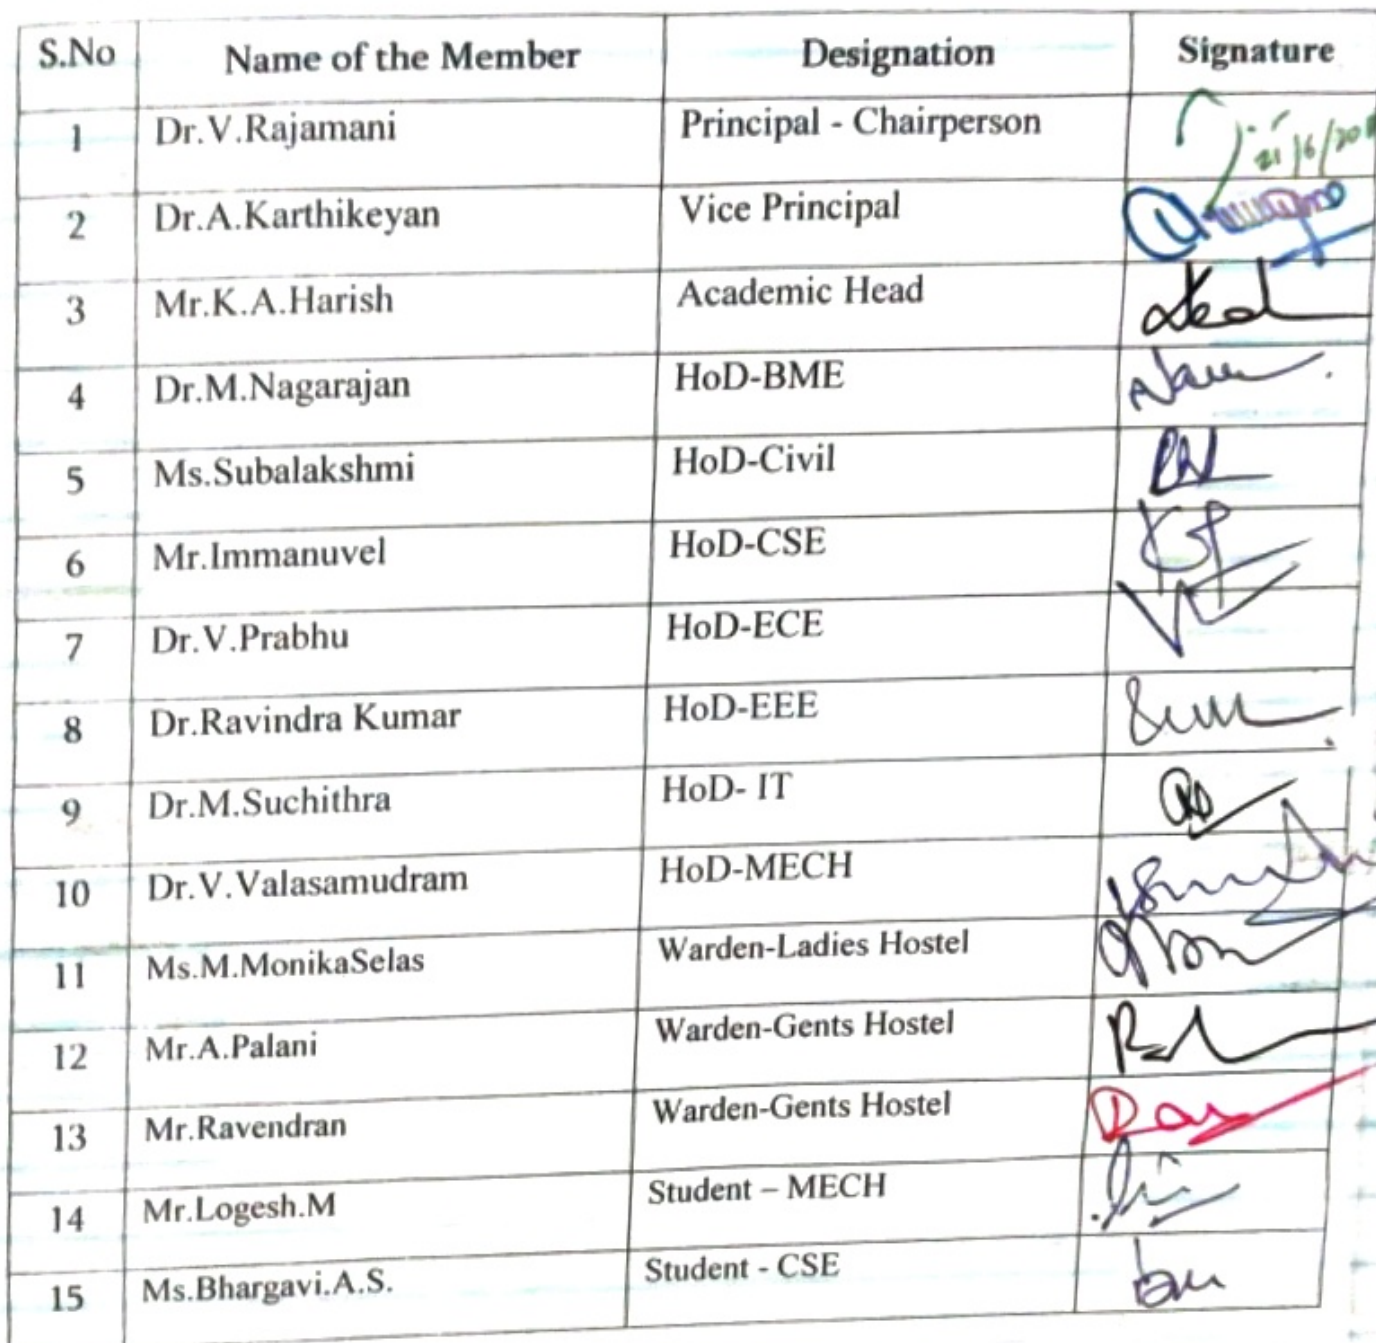 S.No Name of the Member Designation Signature
1 Dr.V.Rajamani Principal - Chairperson
21/6/20
2 Dr.A.Karthikeyan Vice Principal
3 Mr.K.A.Harish Academic Head
4 Dr.M.Nagarajan HoD-BME
5 Ms.Subalakshmi HoD-Civil
6 Mr.Immanuvel HoD-CSE
7 Dr.V.Prabhu HoD-ECE
8 Dr.Ravindra Kumar HoD-EEE
9 Dr.M.Suchithra HoD- IT
10 Dr.V.Valasamudram HoD-MECH
11 Ms.M.MonikaSelas Warden-Ladies Hostel
12 Mr.A.Palani Warden-Gents Hostel
13 Mr.Ravendran Warden-Gents Hostel
14 Mr.Logesh.M Student – MECH
15 Ms.Bhargavi.A.S. Student - CSE